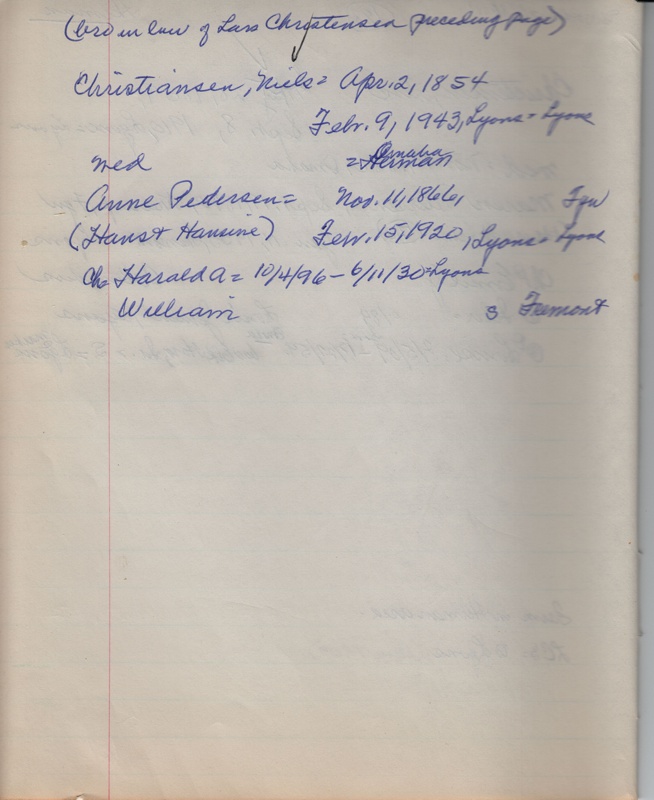 (bro in law of Lars Christensen preceding page)
Christiansen, Niels = Apr. 2, 1854
Febr. 9, 1943, Lyons = Lyons
wed = Omaha
Anne Pedersen = Nov. 11, 1866, Fyn
(Hans & Hansine) Febr. 15, 1920, Lyons = Lyons
Ch = Harald A = 10/4/96 - 6/11/30 = Lyons
William S Fremont